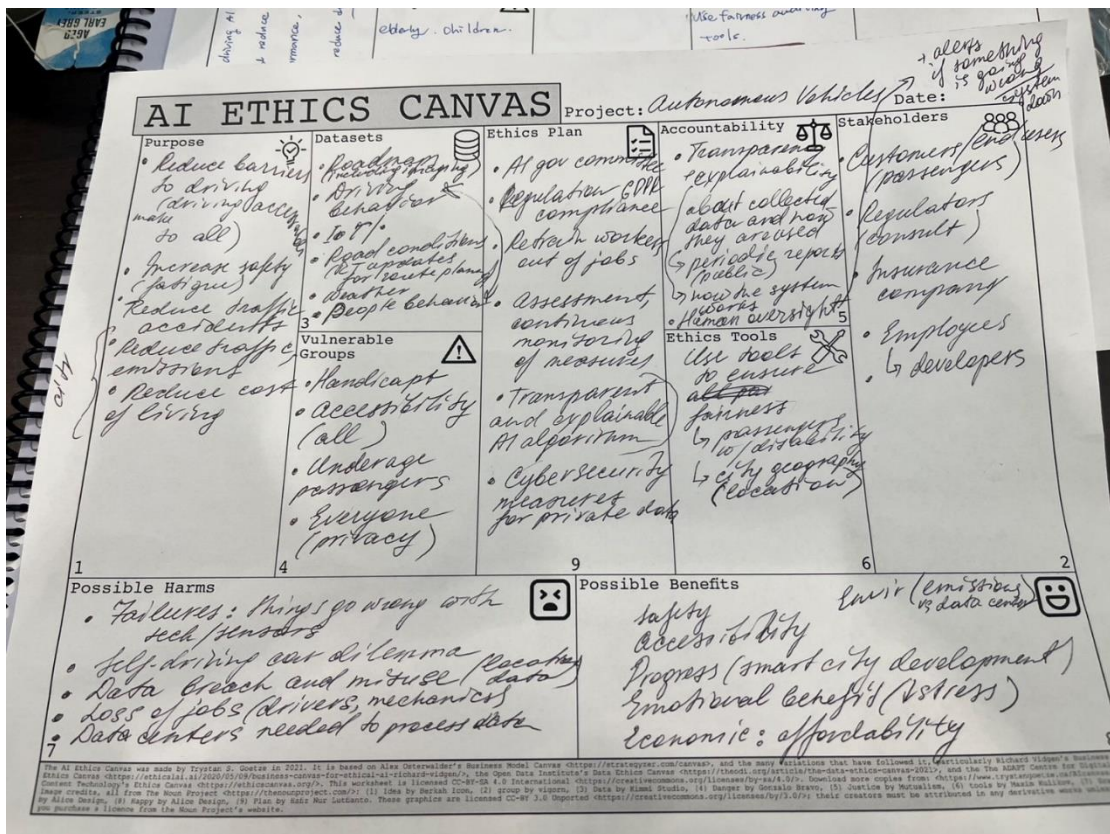 AGED
EARL GREY
driving AI
to reduce
elderly. children.
Use fairness auditing
tools.
AI ETHICS CANVAS
Project: Autonomous Vehicles
Date:
→ alerts
if something
is going
wrong
system
down
Purpose
• Reduce barriers
to driving
(driving access
make
to all)
• Increase safety
(fatigue)
• Reduce traffic
accidents
• Reduce traffic,
emissions
• Reduce cost
of living
1
Datasets
• Roadmaps
(including imaging)
• Driving
behavior
• IoT
• Road conditions
for route plans
• Weather
• People behavior
3
Vulnerable
Groups
• Handicapt
• Accessibility
(all)
• Underage
passengers
• Everyone
(privacy)
4
Ethics Plan
• AI gov committee
• Regulation GDPR
compliance
• Retrain workers
out of jobs
• Assessment,
continuous
monitoring
of measures
• Transparent
and explainable
AI algorithm
• Cybersecurity
measures
for private data
9
Accountability
• Transparency
explainability
about collected
data and how
they are used
↳ periodic reports
(public)
↳ how the system
works
• Human oversight
5
Ethics Tools
Use tools
to ensure
fairness
↳ passengers
w/disability
↳ city geography
(location)
6
Stakeholders
• Customers/end users
(passengers)
• Regulators
(consult)
• Insurance
company
• Employees
↳ developers
2
Possible Harms
• Failures: things go wrong with
tech/sensors
• Self-driving car dilemma
• Data breach and misuse (location
data)
• Loss of jobs (drivers, mechanics)
• Data centers needed to process data
7
Possible Benefits
Envir (emissions
vs data center)
Safety
Accessibility
Progress (smart city development)
Emotional benefit (↓stress)
Economic: affordability
The AI Ethics Canvas was made by Trystan S. Goetze in 2021. It is based on Alex Osterwalder's Business Model Canvas <https://strategyzer.com/canvas>, and the many variations that have followed it, particularly Richard Vidgen's Business
Ethics Canvas <https://ethicalai.ai/2020/05/09/business-canvas-for-ethical-ai-richard-vidgen/>, the Open Data Institute's Data Ethics Canvas <https://theodi.org/article/the-data-ethics-canvas-2021>, and The ADAPT Centre for Digital
Content Technology's Ethics Canvas <https://ethicscanvas.org/>. This worksheet is licensed CC-BY-SA 4.0 International <https://creativecommons.org/licenses/by-sa/4.0/>. Download more copies from:
Image credits, All from The Noun Project <https://thenounproject.com/>: (1) Idea by Berkah Icon, (2) group by vigorn, (3) Data by Kimmi Studio, (4) Danger by Gonzalo Bravo, (5) Justice by Mutualism, (6) tools by
by Alice Design, (8) Happy by Alice Design, (9) Plan by These graphics are licensed CC-BY 3.0 Unported <https://creativecommons.org/licenses/by/3.0/>; their creators must be attributed in any derivative works unless
you purchase a licence from the Noun Project's website.